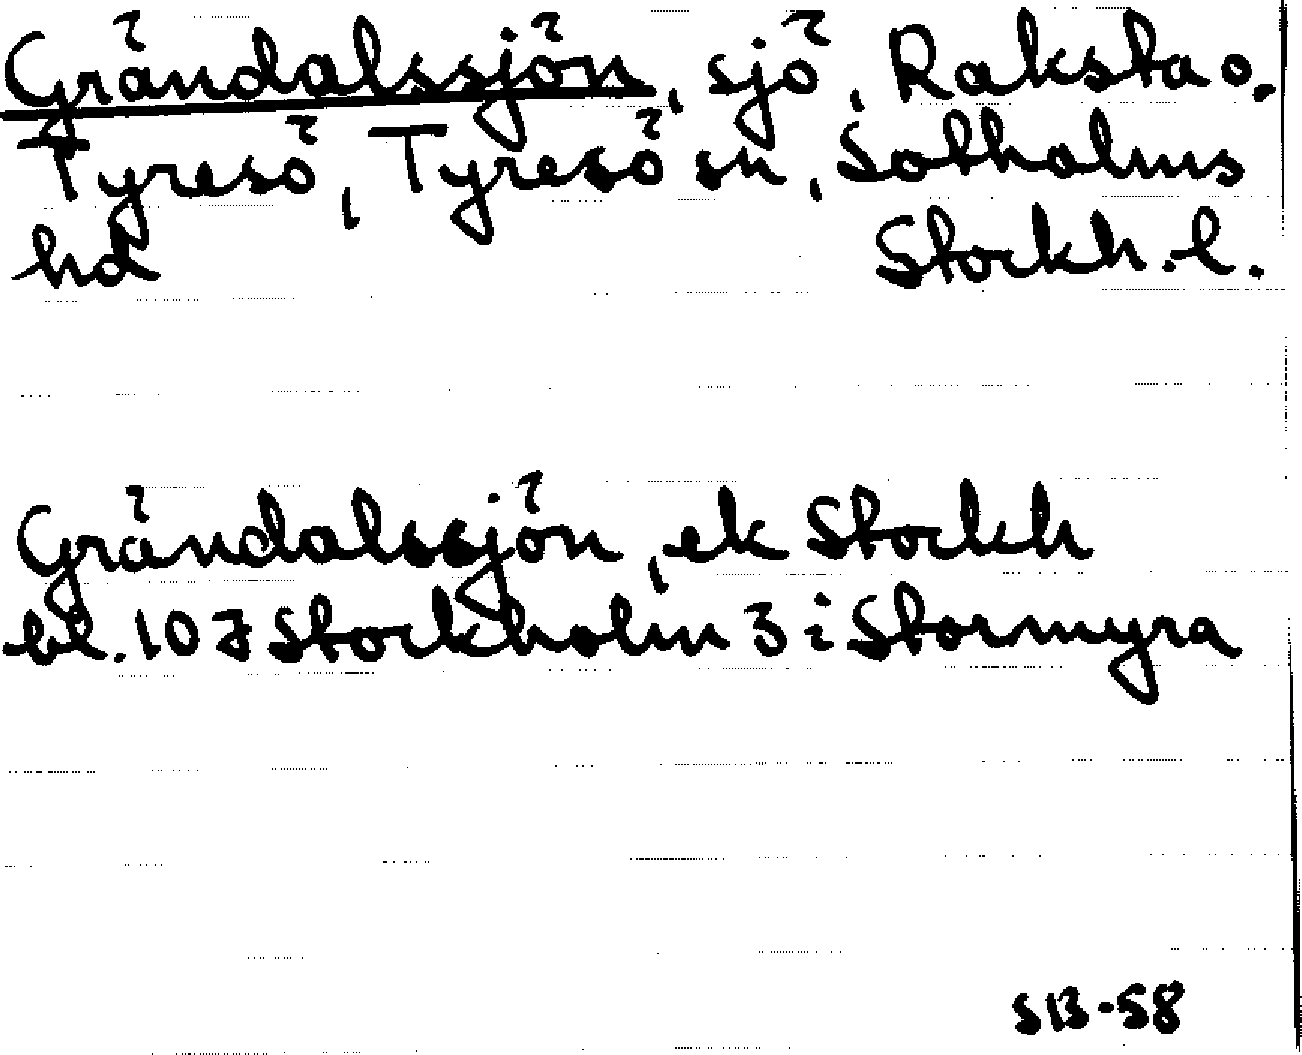 Grändalssjön, sjö, Raksta o.
Tyresö, Tyresö sn, Sotholms
hd Stockh. l.
Grändalssjön, ek Stockh
bl. 107 Stockholm 3 i Stormyra
SB-58